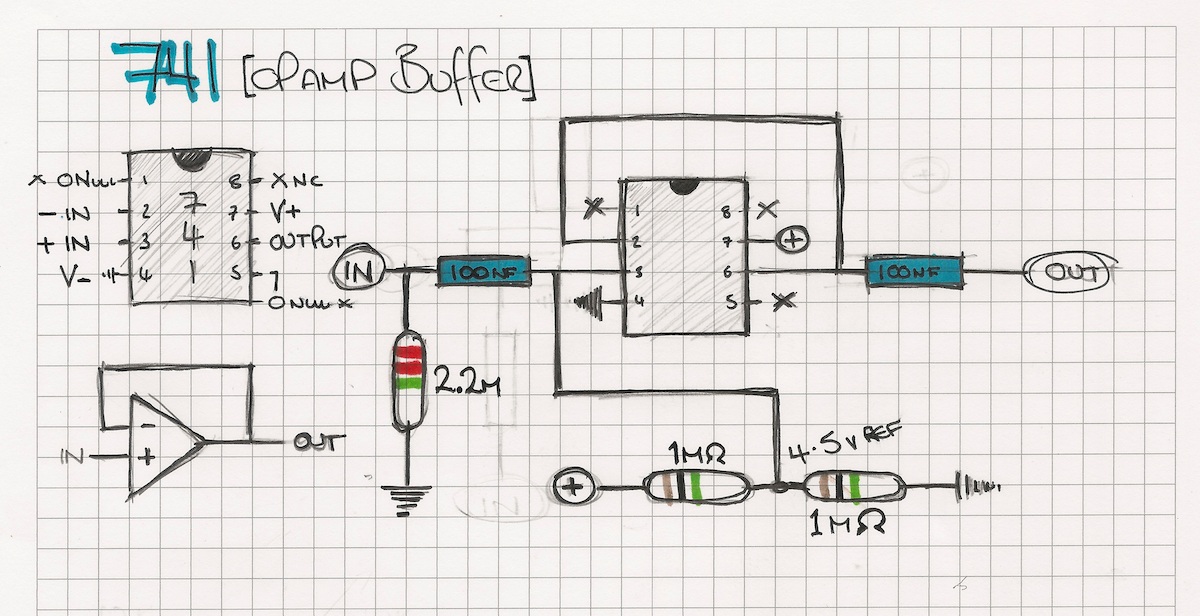 741 [OPAMP BUFFER]
X ONULL 1 8 X NC
- IN 2 7 7 V+
+ IN 3 4 6 OUTPUT
V- 4 1 5 7
ONULL X
X 1 8 X
2 7 +
IN 100NF 3 6 100NF OUT
4 5 X
2.2M
- OUT
IN +
1MΩ 4.5V REF
+
1MΩ
IN